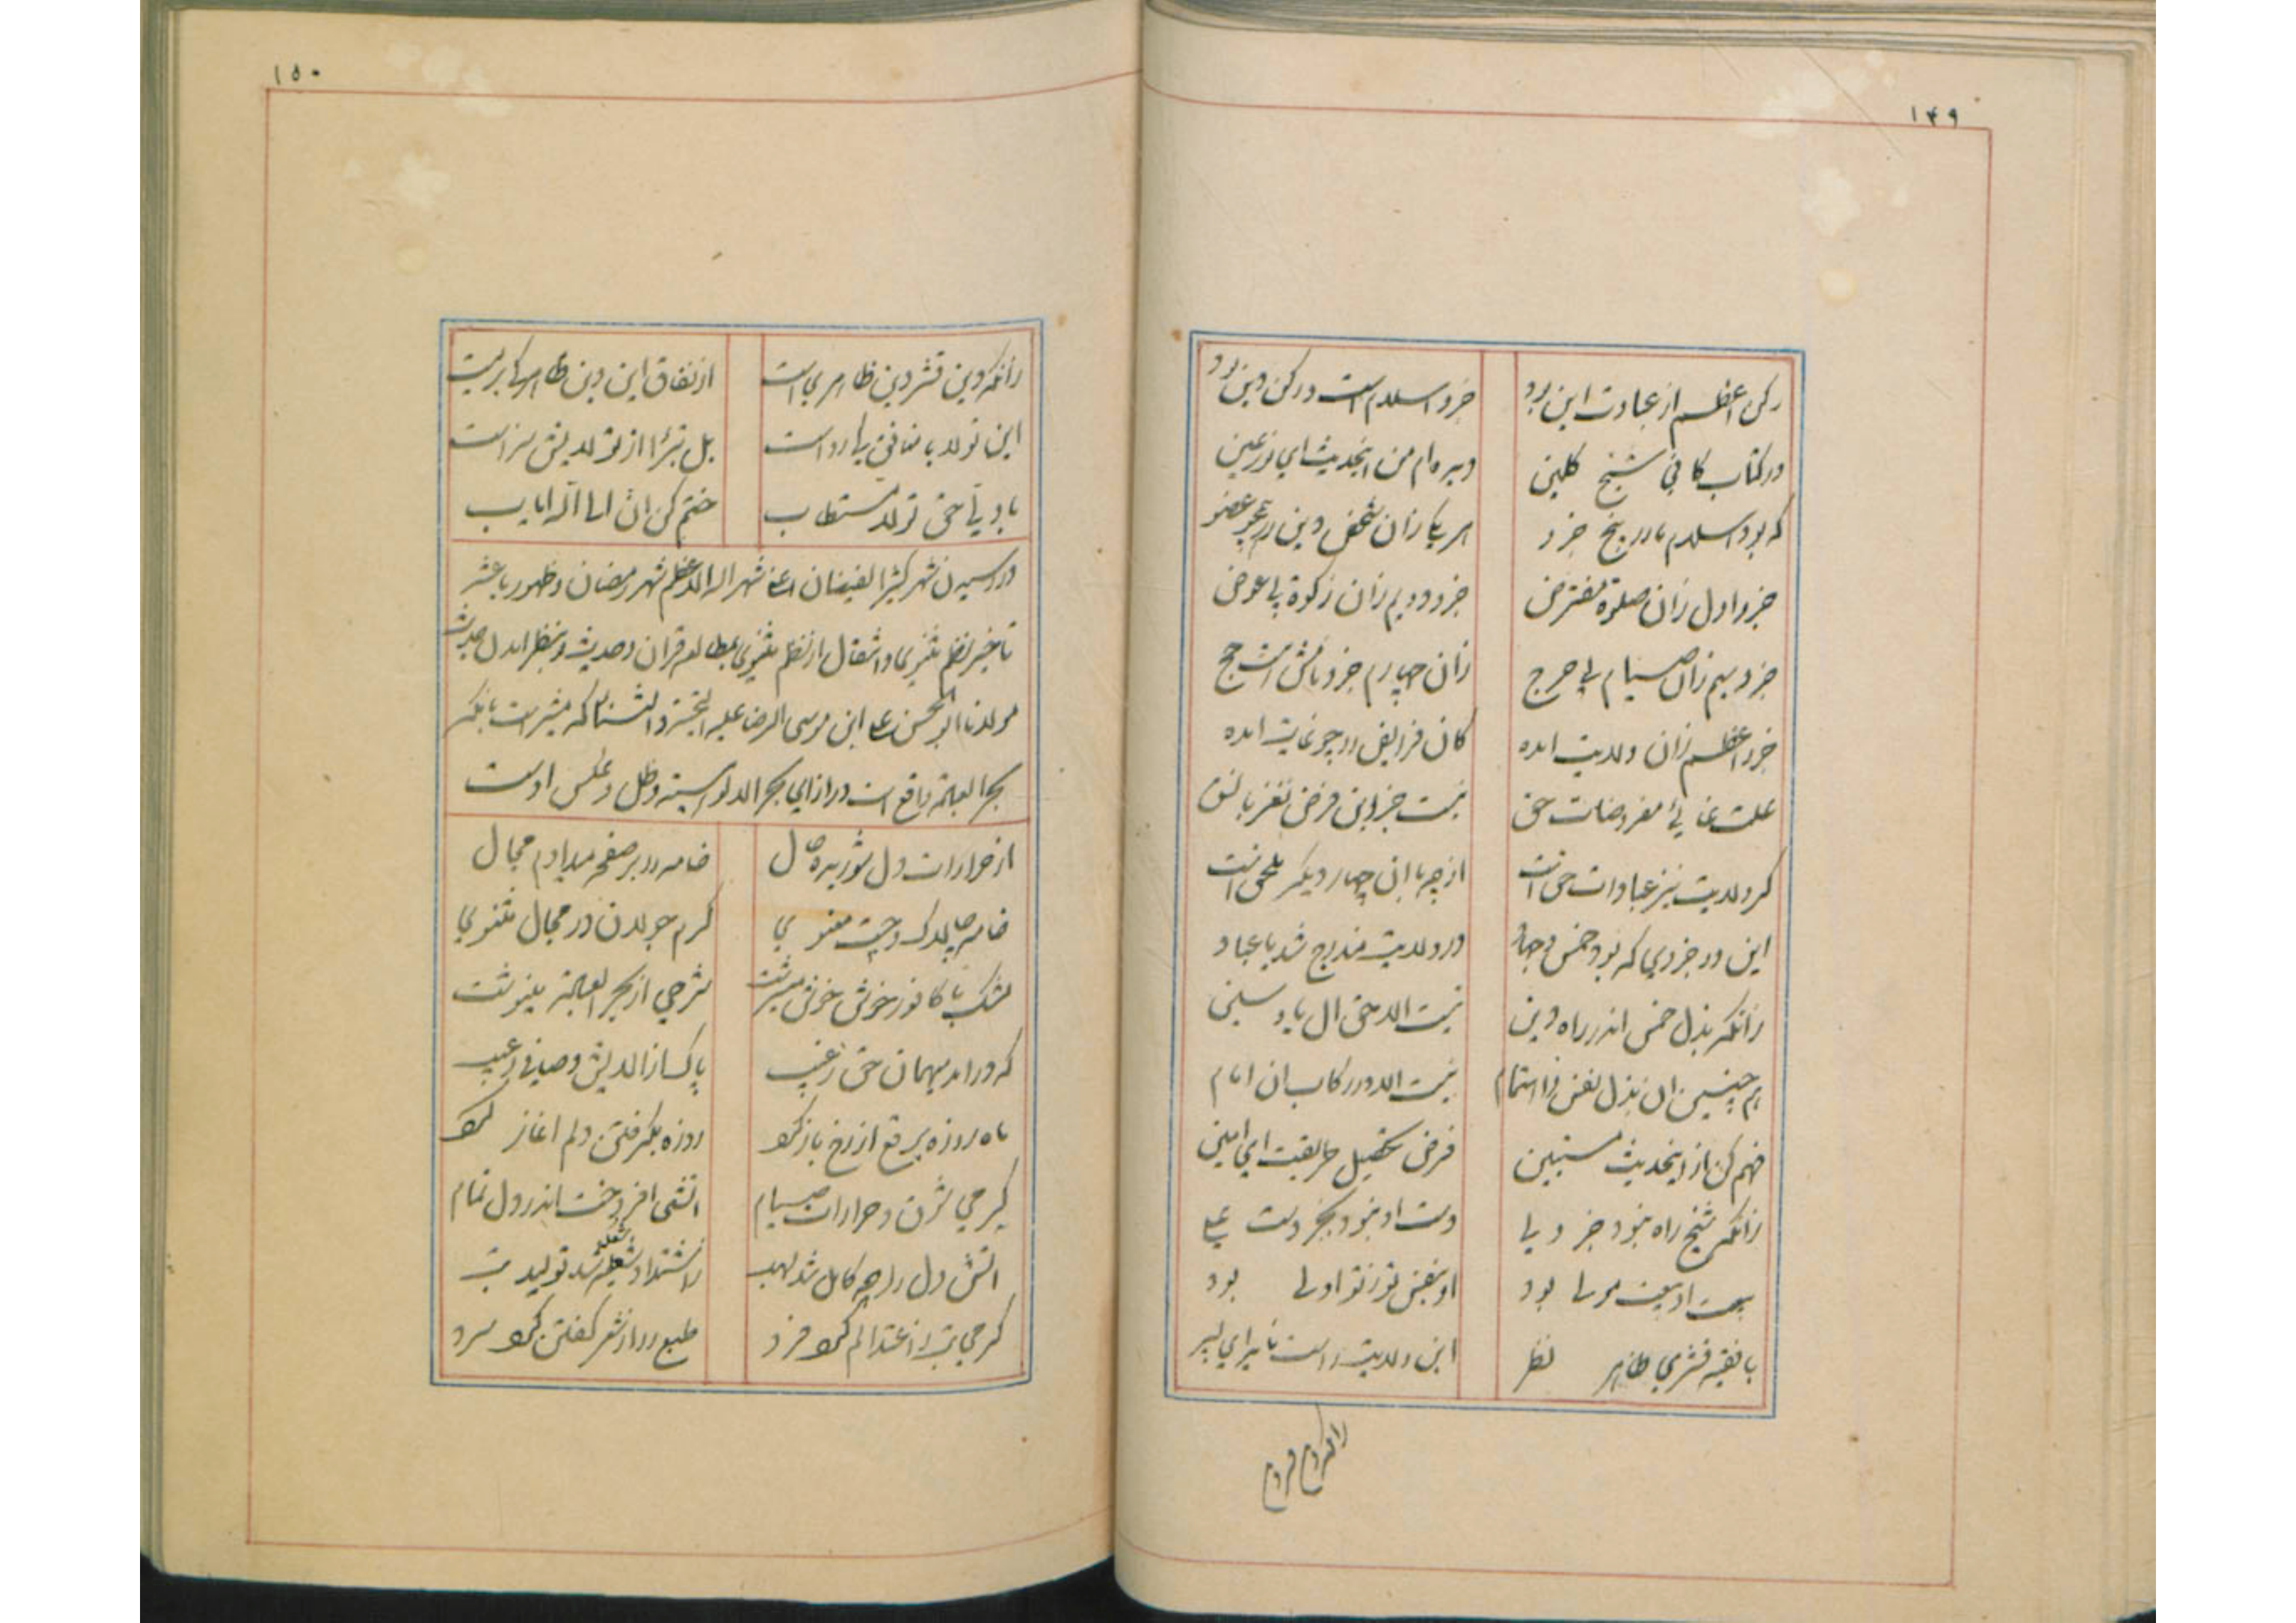 ۱۴۹
رکن اعظم از عبادت این بود جزو اسلام است و رکن دین بود
در کتاب کافی شیخ کلین دیده‌ام من اینحدیث ای نور عین
که بود اسلام را در پنج جزو هر یکا زان شخص دین را همچو عضو
جزو اول زان صلوة مفترض جزو دویم زان زکوة بی عوض
جزو سیم زان صیام بی حرج زان چهارم جزو باشد حج
جزو اعظم زان ولایت امده کان فرایض را چو غایت امده
علت غایی مفروضات حق نیست جز این فرض نغز با نسق
کرد ولایت نیز عبادات حق است از چه با ان چهار دیگر ملحق است
این دو جزوی که بود خمس و جهاد در ولایت مندرج شد با عباد
زانکه بذل خمس اندر راه دین نیست الا حق ال یا و سین
هم چنین ان بذل نفس و اهتمام نیست الا در رکاب ان امام
فهم کن از اینحدیث مستبین فرض تحصیل طریقت ای امین
زانکه شیخ راه نبود جز ولی دست او نبود بجز دست علی
بیعت او بیعت مولی بود او بنفس تو ز تو اولی بود
با فقیه قشری ظاهر نظر این ولایت راست نی ای پسر
۱۵۰
زانکه دین قشر دین ظاهری است از نفاق این دین ظاهر کی بریست
این تولا با منافق کی رواست بل تبرا از تولایش سزاست
با ولی حق تولا مستطاب ختم کن ان الینا ایاب
در رسیدن شهر کثیر الفیضان اعنی شهر الله الاعظم شهر رمضان و ظهور باعث
تاخیر نظم مثنوی و اشتغال از نظم مثنوی بمطالعه قران و حدیث و بنظر اول حدیث
مولانا ابو الحسن علی ابن موسی الرضا علیه التحیة و الثناء که مشعر است بانکه
بحر العلقمه واقع است در ازای بحر اللاهوتیه و ظل و عکس اوست
از حرارات دل شوریده حال خامه را بر صفحه میدادم مجال
خامه چالاک و چست معنوی گرم جولان در مجال مثنوی
مشک با کافور خوش خوش میسرشت شرحی از بحر العلقمه مینوشت
که در امد میهمان حق ز غیب پاکساز الایش و صافی ز عیب
ماه روزه برقع از رخ باز کرد روزه بگرفتن دلم اغاز کرد
گرمی شرق و حرارات صیام اتشی افروخت اندر دل تمام
اتش دل را چو کامل شد لهب ز اشتداد شعله شد تولید تب
گرمی تب از اعتدالم کرد فرد طبع را از شعر گفتن کرد سرد